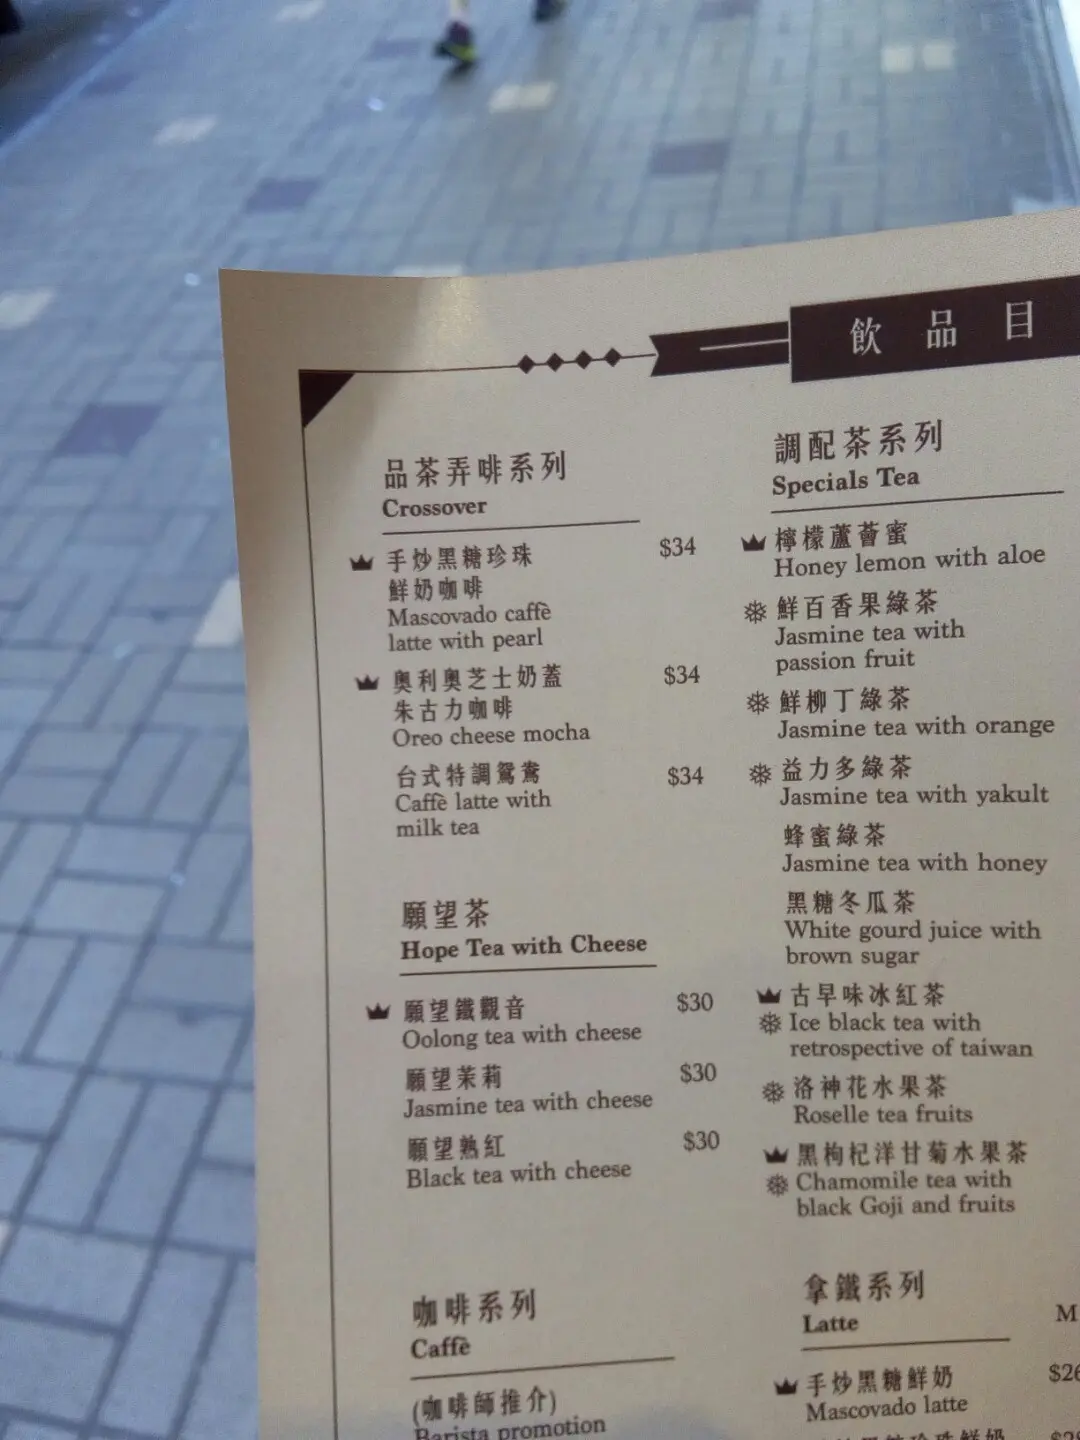 飲品目
品茶弄啡系列
Crossover
手炒黑糖珍珠 $34
鮮奶咖啡
Mascovado caffè
latte with pearl
奧利奧芝士奶蓋 $34
朱古力咖啡
Oreo cheese mocha
台式特調鴛鴦 $34
Caffè latte with
milk tea
願望茶
Hope Tea with Cheese
願望鐵觀音 $30
Oolong tea with cheese
願望茉莉 $30
Jasmine tea with cheese
願望熟紅 $30
Black tea with cheese
咖啡系列
Caffè
(咖啡師推介)
Barista promotion
調配茶系列
Specials Tea
檸檬蘆薈蜜
Honey lemon with aloe
鮮百香果綠茶
Jasmine tea with
passion fruit
鮮柳丁綠茶
Jasmine tea with orange
益力多綠茶
Jasmine tea with yakult
蜂蜜綠茶
Jasmine tea with honey
黑糖冬瓜茶
White gourd juice with
brown sugar
古早味冰紅茶
Ice black tea with
retrospective of taiwan
洛神花水果茶
Roselle tea fruits
黑枸杞洋甘菊水果茶
Chamomile tea with
black Goji and fruits
拿鐵系列
Latte M
手炒黑糖鮮奶 $26
Mascovado latte